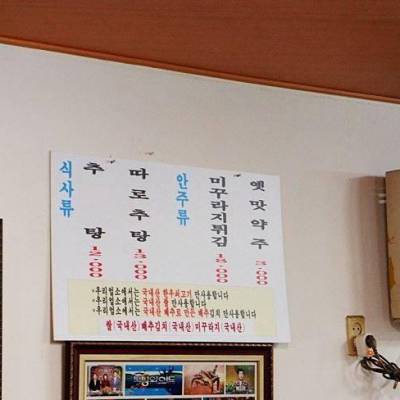 식사류
추탕 12,000
따로추탕 13,000
안주류
미꾸라지튀김 18,000
옛맛약주 3,000
*우리업소에서는 국내산 한우쇠고기 만사용합니다
*우리업소에서는 국내산 쌀 만사용합니다
*우리업소에서는 국내산 배추로 만든 배추김치 만사용합니다
쌀(국내산) 배추김치(국내산) 미꾸라지(국내산)